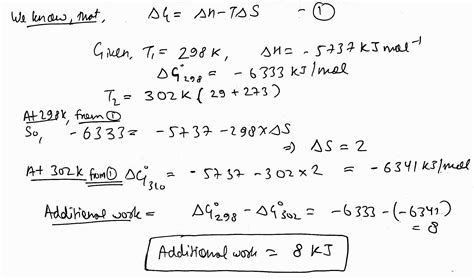 We know, that, ΔG = ΔH-TΔS — ①
Given, T₁ = 298K, ΔH = -5737 KJ mol⁻¹
ΔG°₂₉₈ = -6333 KJ/mol
T₂ = 302K (29+273)
At 298K, from ①
So, -6333 = -5737 -298×ΔS
⇒ ΔS = 2
At 302K from ① ΔG°₃₁₀ = -5737 -302×2 = -6341 KJ/mol
Additional work = ΔG°₂₉₈ - ΔG°₃₀₂ = -6333-(-6341)
= 8
Additional work = 8 KJ